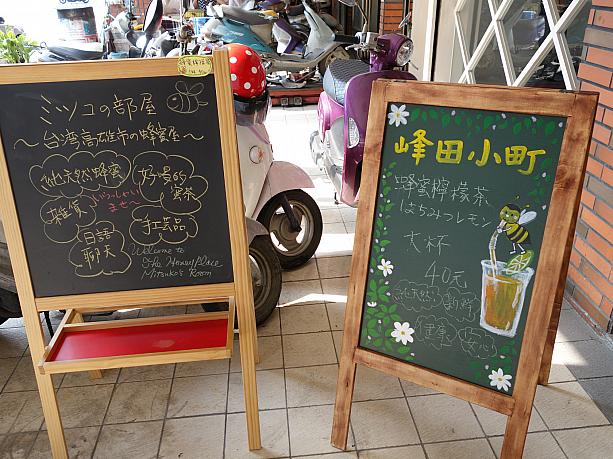 ミツコの部屋
～台湾高雄市の蜂蜜屋～
純天然蜂蜜
好喝的
蜜茶
雜貨
いらっしゃい
ませ～
手芸品
日語
聊天
Welcome to
The Honey Place
Mitsuko's Room
峰田小町
蜂蜜檸檬茶
はちみつレモン
大杯
40元
純天然 新鮮
健康 安心